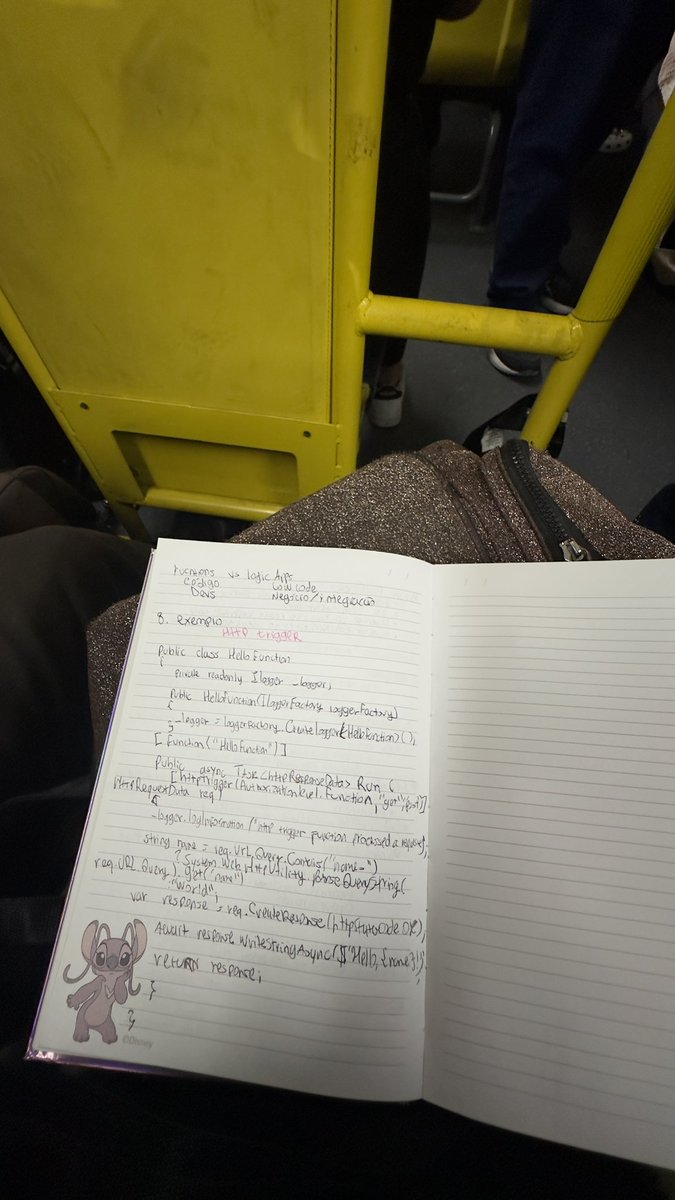 Functions vs Logic Apps
Código Low code
Devs Negócio/integração
8. exemplo
HTTP trigger
public class HelloFunction
{
private readonly ILogger _logger;
public HelloFunction(ILoggerFactory loggerFactory)
{
_logger = loggerFactory.CreateLogger<HelloFunction>();
}
[Function("HelloFunction")]
public async Task<HttpResponseData> Run (
[HttpTrigger(AuthorizationLevel.Function, "get", "post")]
HttpRequestData req)
{
_logger.LogInformation ("http trigger function processed a request");
string name = req.URL.Query.Contais("name=")
? System.Web.HttpUtility.ParseQueryString(
req.URL.Query).get("name")
: "World";
var response = req.CreateResponse(httpStatusCode.OK);
Await response.WriteStringAsync($"Hello, {name}!");
return response;
}
}
©Disney